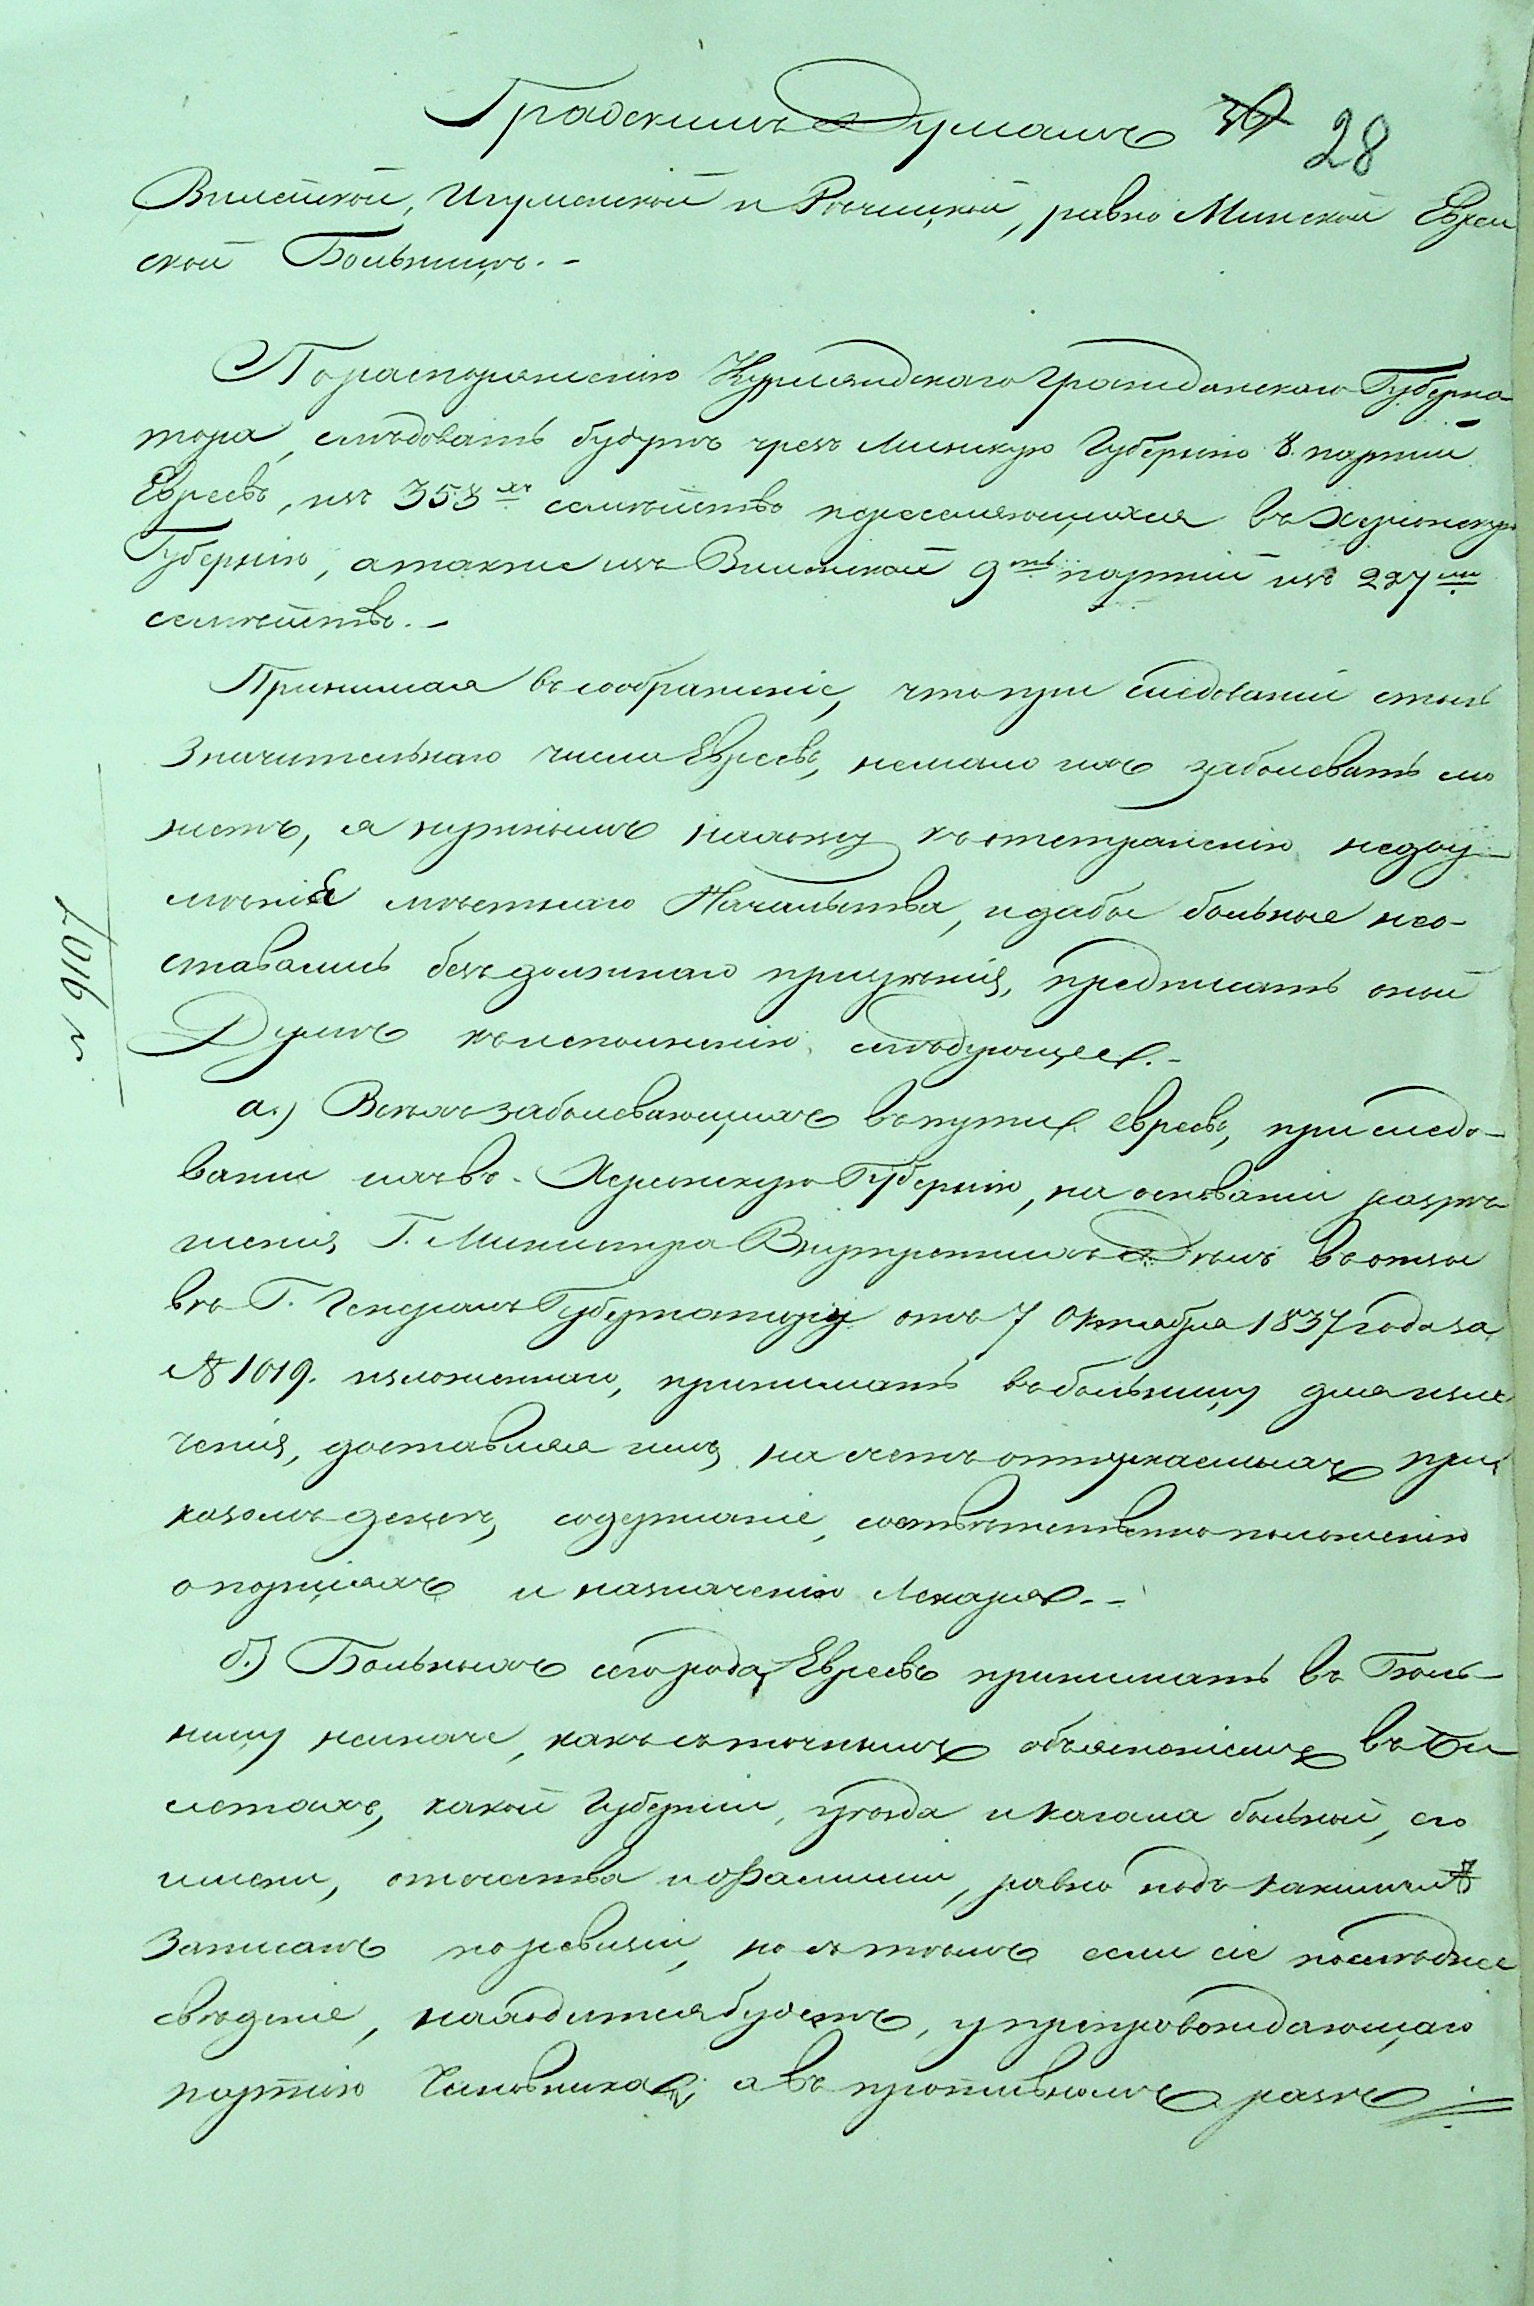 Градскимъ Думамъ 28
Вилейской, Игуменской и Речицкой, равно Минской Еврей
ской Больницѣ.-
По распоряженію Курляндскаго Гражданскаго Губерна-
тора, слѣдовать будутъ чрезъ Минскую Губернію 8. партій
Евреевъ, изъ 353хъ семействъ переселяющихся въ Херсонскую
Губернію, а также изъ Виленской 9ть партій изъ 227ми
семействъ.-
Принимая въ соображеніе, что при следованіи столь
значительнаго числа Евреевъ, немало ихъ заболевать мо
жетъ, я нужнымъ нахожу къ отстраненію недоу-
мѣнія мѣстнаго Начальства, и дабы больные нео-
ставались безъ должнаго призрѣнія, предписать оной
Думѣ къ исполненію слѣдующее.-
№ 9107
а.) Всѣхъ заболевающихъ въ пути Евреевъ, при следо-
ваніи ихъ въ Херсонскую Губернію, на основаніи разрѣ-
шенія Г. Министра Внутреннихъ Дѣлъ въ отзы
вѣ Г. Генералъ Губернатору отъ 7 Октября 1837 года за
№ 1019. изложеннаго, принимать въ больницу для изле
ченія, доставляя имъ, на счетъ отпускаемыхъ при
казомъ денегъ, содержаніе, соотвѣтственно положенію
о порціяхъ и назначенію Лекаря.-
б.) Больныхъ сего рода Евреевъ принимать въ Боль-
ницу неиначе, какъ съ точнымъ объясненіемъ въ Би
летахъ, какой Губерніи, уѣзда и кагала больной, его
имени, отчества и фамиліи, равно подъ какимъ №
записанъ по ревизіи, но съ тѣмъ если сіе послѣднее
свѣденіе, находится будетъ, у препровождающаго
партію Чиновника, а въ противномъ разѣ